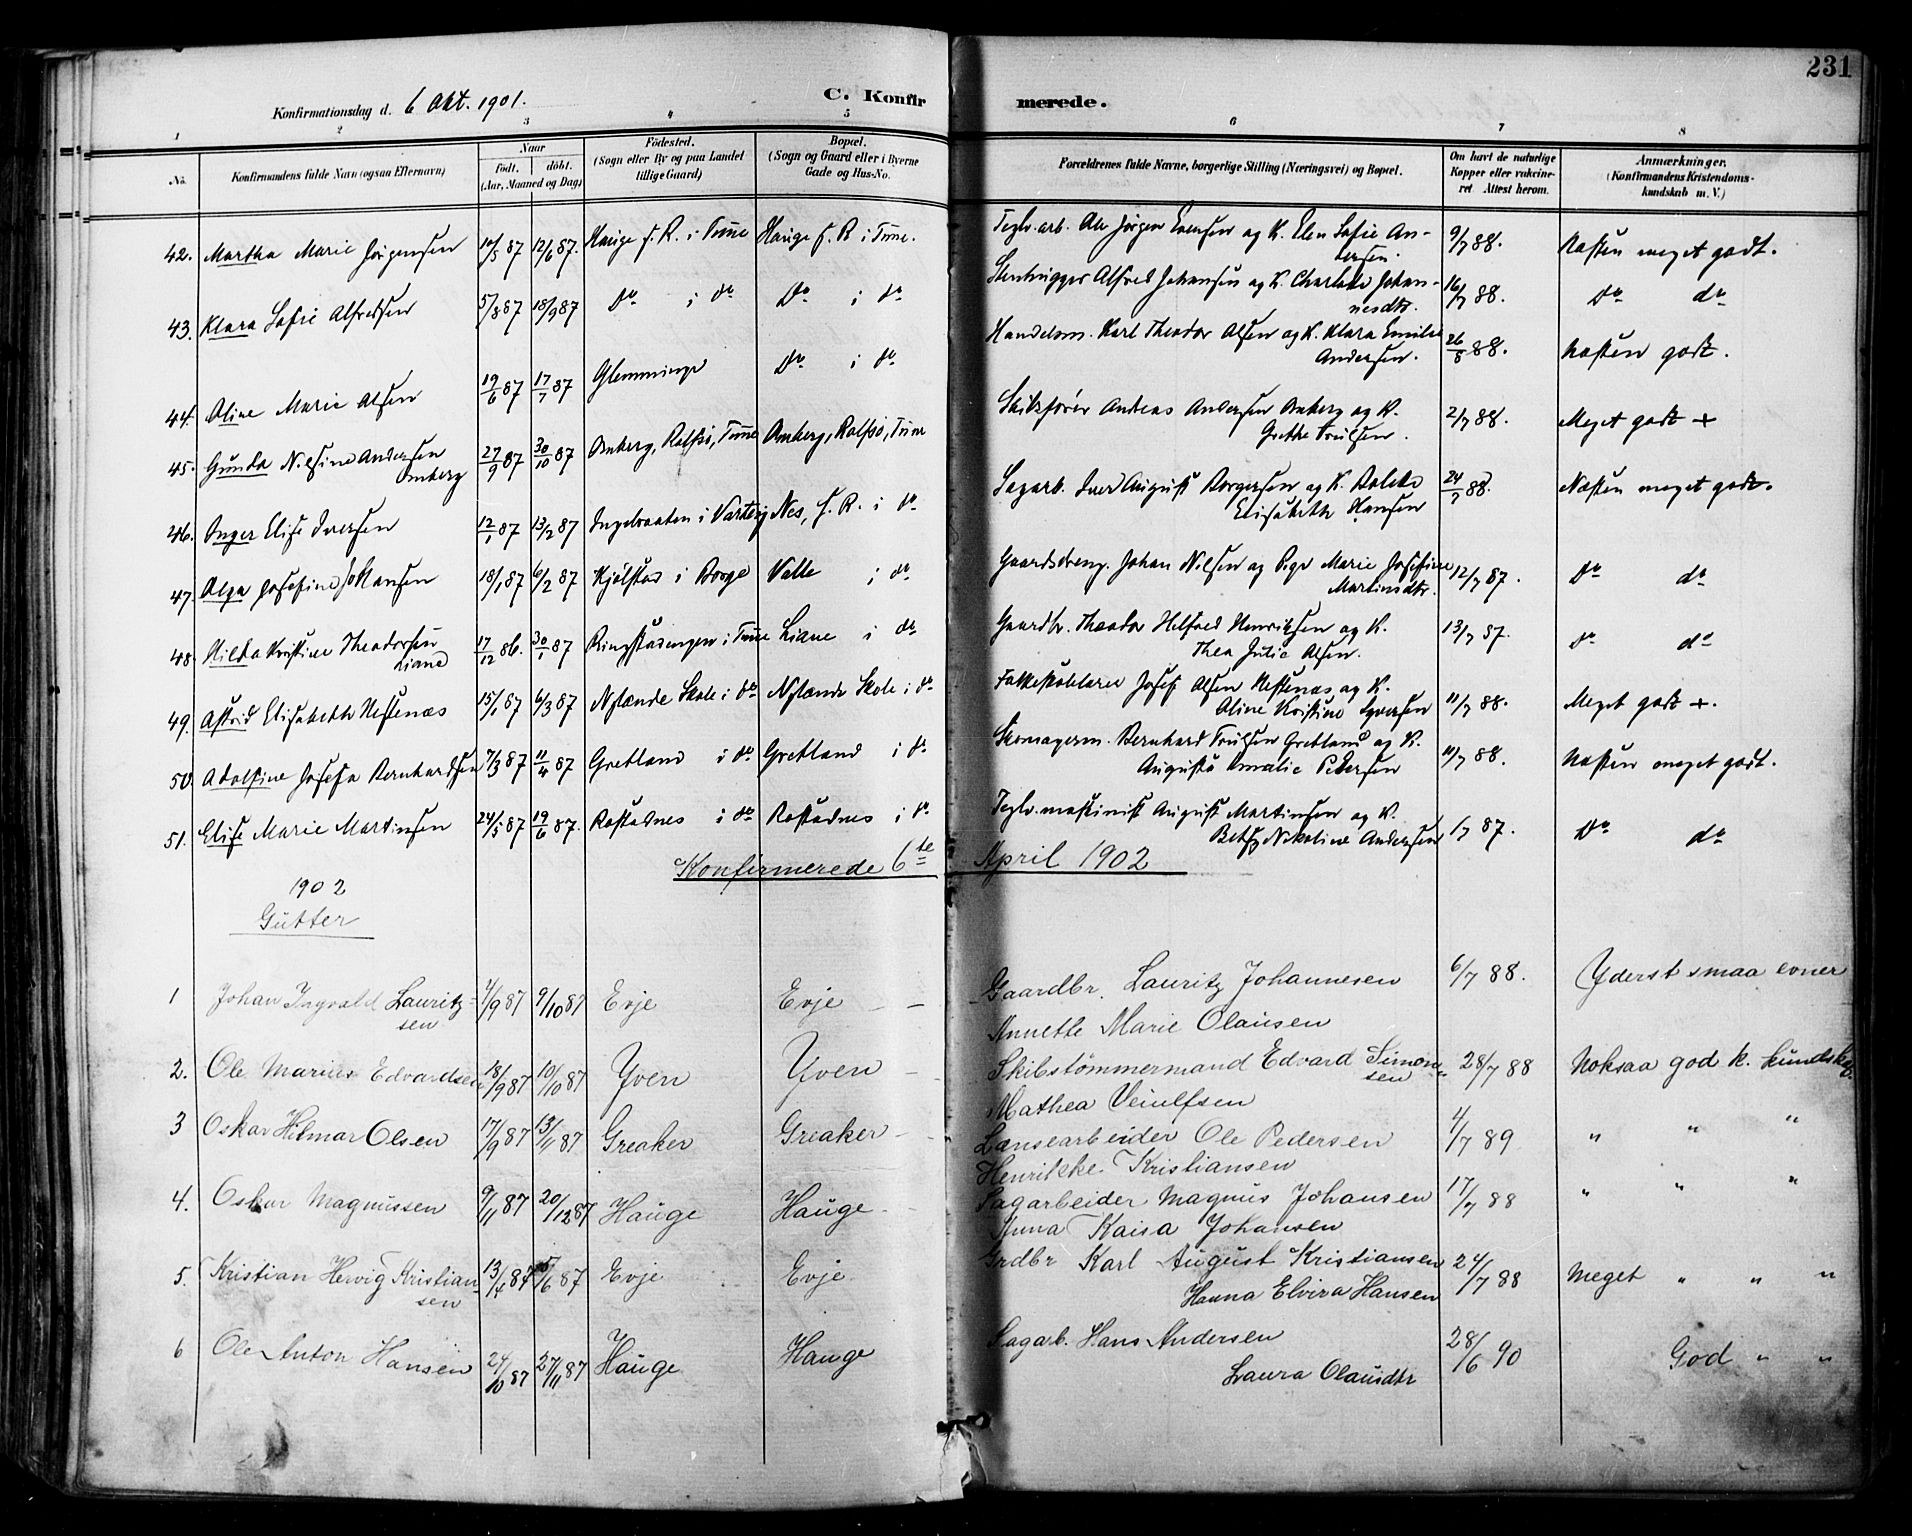 231
Konfirmationsdag d. 6 Okt. 1901. C. Konfirmerede.
1 2 3 4 5 6 7 8
No. Konfirmandens fulde Navn (ogsaa Efternavn) Naar født. døbt. (Aar, Maaned og Dag) Fødested. (Sogn eller By og paa Landet tillige Gaard) Bopæl. (Sogn og Gaard eller i Byerne Gade og Hus-No. Forældrenes fulde Navne, borgerlige Stilling (Næringsvei) og Bopæl. Om havt de naturlige Kopper eller vakcineret. Attest herom. Anmærkninger. (Konfirmandens Kristendomskundskab m. V.)
42. Martha Marie Jørgensen 10/5 87 12/6 87. Hauge f. R. i Tune Hauge f. R i Tune. Teglv. arb. Ole Jørgen Evensen og K. Elen Sofie An- 9/7 88. Næsten meget godt.
dersen.
43. Klara Sofie Alfredsen 5/8 87 18/9 87 Do i do Do i do Stenhugger Alfred Johansen og K. Charlotte Johan- 16/7 88. Do do
nesdtr.
44. Aline Marie Olsen 19/6 87 17/7 87 Glemminge Do i do Handelsm. Karl Theodor Olsen og K. Klara Emilie 26/8 88. Næsten godt.
Andersen.
45. Gunda Nilsine Andersen 27/9 87 30/10 87 Omberg, Rolfsø, Tune Omberg, Rolfsø, Tune Skibsfører Andreas Andersen Omberg og K. 2/7 88. Meget godt +
Omberg Grethe Trulsen.
46. Inger Elise Iversen 12/1 87 13/2 87 Ingelsraaten i Varteig Nes, f. R. i do Sagarb. Iver August Borgersen og K. Bolette 24/7 88. Næsten meget godt.
Elisabeth Hansen
47. Olga Josefine Johansen 18/1 87 6/2 87 Kjølstad i Borge Valle i do Gaardsdreng. Johan Nilsen og Pige Marie Josefine 12/7 87. Do do
Martinsdtr.
48. Hilda Kristine Theodorsen 17/12 86. 30/1 87 Ringstadengen i Tune Liane i do Gaardbr. Theodor Helfred Henriksen og K. 13/7 87. Do do
Liane Thea Julie Olsen.
49. Astrid Elisabeth Nestenæs 15/1 87 6/3 87 Nylænde Skole i do Nylænde Skole i do Folkeskolelærer Josef Olsen Nestenæs og K. 11/7 88. Meget godt +.
Aline Kristine Syversen
50. Adolfine Josefa Bernhardsen 7/3 87 11/4 87 Gretland i do Gretland i do Skomagerm. Bernhard Trulsen Gretland og K. 11/7 88. Næsten meget godt.
Augusta Amalie Pedersen
51. Elise Marie Martinsen 24/5 87 19/6 87. Rostadnes i do Rostadnes i do Teglv. maskinist August Martinsen og K. 1/7 87. Do do
Betsy Nikoline Andersen
Konfirmerede 6te April 1902
1902
Gutter
1 Johan Ingvald Lauritz- 7/9 87 9/10 87 Evje Evje Gaardbr. Lauritz Johannesen 6/7 88. Yderst smaa evner
sen Annette Marie Olausen
2. Ole Marius Edvardsen 18/9 87 10/10 87 Yven Yven Skibstømmermand Edvard Simon- 28/7 88 Noksaa god k. kundskab.
sen
Mathea Veiulfsen
3 Oskar Hilmar Olsen 17/9 87 13/11 87 Greaker Greaker Lænsearbeider Ole Pedersen 4/7 89 " " "
Henrikke Kristiansen
4. Oskar Magnussen 9/11 87 20/12 87 Hauge Hauge Sagarbeider Magnus Johansen 17/7 88 " " "
Anna Kaisa Johansen
5. Kristian Hervig Kristian- 13/4 87 5/6 87 Evje Evje Grdbr Karl August Kristiansen 24/7 88 Meget " " "
sen Hanna Elvira Hansen
6 Ole Anton Hansen 24/10 87 27/11 87 Hauge Hauge Sagarb. Hans Andersen 28/6 90 God " "
Laura Olausdtr